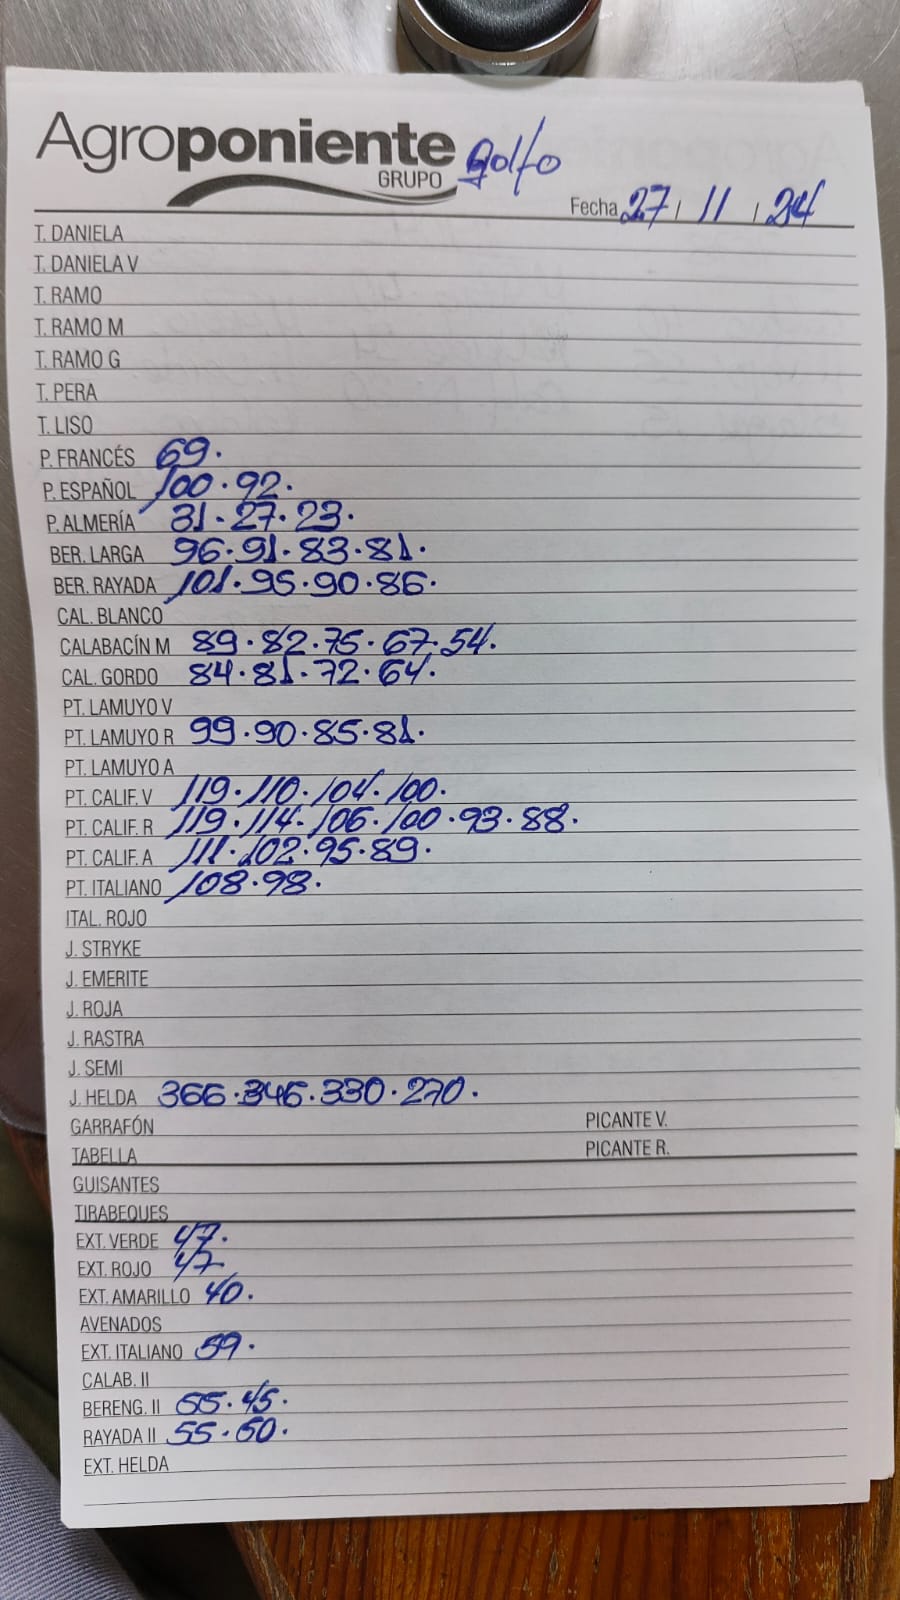 Agroponiente
GRUPO
golfo
Fecha 27 / 11 / 24
T. DANIELA
T. DANIELA V
T. RAMO
T. RAMO M
T. RAMO G
T. PERA
T. LISO
P. FRANCÉS 69.
P. ESPAÑOL 100.92.
P. ALMERÍA 31.27.23.
BER. LARGA 96.91.83.81.
BER. RAYADA 101.95.90.86.
CAL. BLANCO
CALABACÍN M 89.82.75.67.54.
CAL. GORDO 84.81.72.64.
PT. LAMUYO V
PT. LAMUYO R 99.90.85.81.
PT. LAMUYO A
PT. CALIF. V 119.110.104.100.
PT. CALIF. R 119.114.106.100.93.88.
PT. CALIF. A 111.102.95.89.
PT. ITALIANO 108.98.
ITAL. ROJO
J. STRYKE
J. EMERITE
J. ROJA
J. RASTRA
J. SEMI
J. HELDA 366.346.330.270.
GARRAFÓN PICANTE V.
TABELLA PICANTE R.
GUISANTES
TIRABEQUES
EXT. VERDE 47.
EXT. ROJO 47
EXT. AMARILLO 40.
AVENADOS
EXT. ITALIANO 59.
CALAB. II
BERENG. II 55.45.
RAYADA II 55.50.
EXT. HELDA